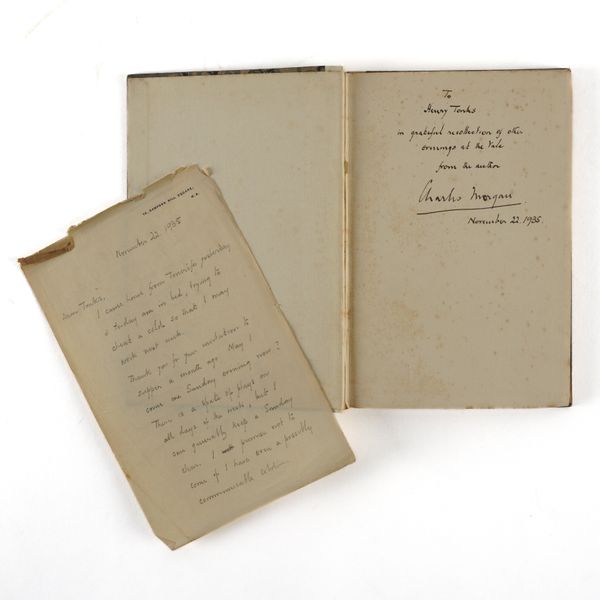 To
Henry Tonks
in grateful recollection of other
evenings at the Vale
from the author
Charles Morgan
November 22. 1935.
16, CAMPDEN HILL SQUARE,
November 22. 1935
Dear Tonks,
I came home from Tenerife yesterday
& today am in bed, trying to
cheat a cold so that I may
work next week.
Thank you for your invitation to
supper a month ago. May I
come one Sunday evening now?
There is a spate of plays on
all days of the week, but I
can generally keep a Sunday
clear. I promise not to
come if I have even a possibly
communicable cold